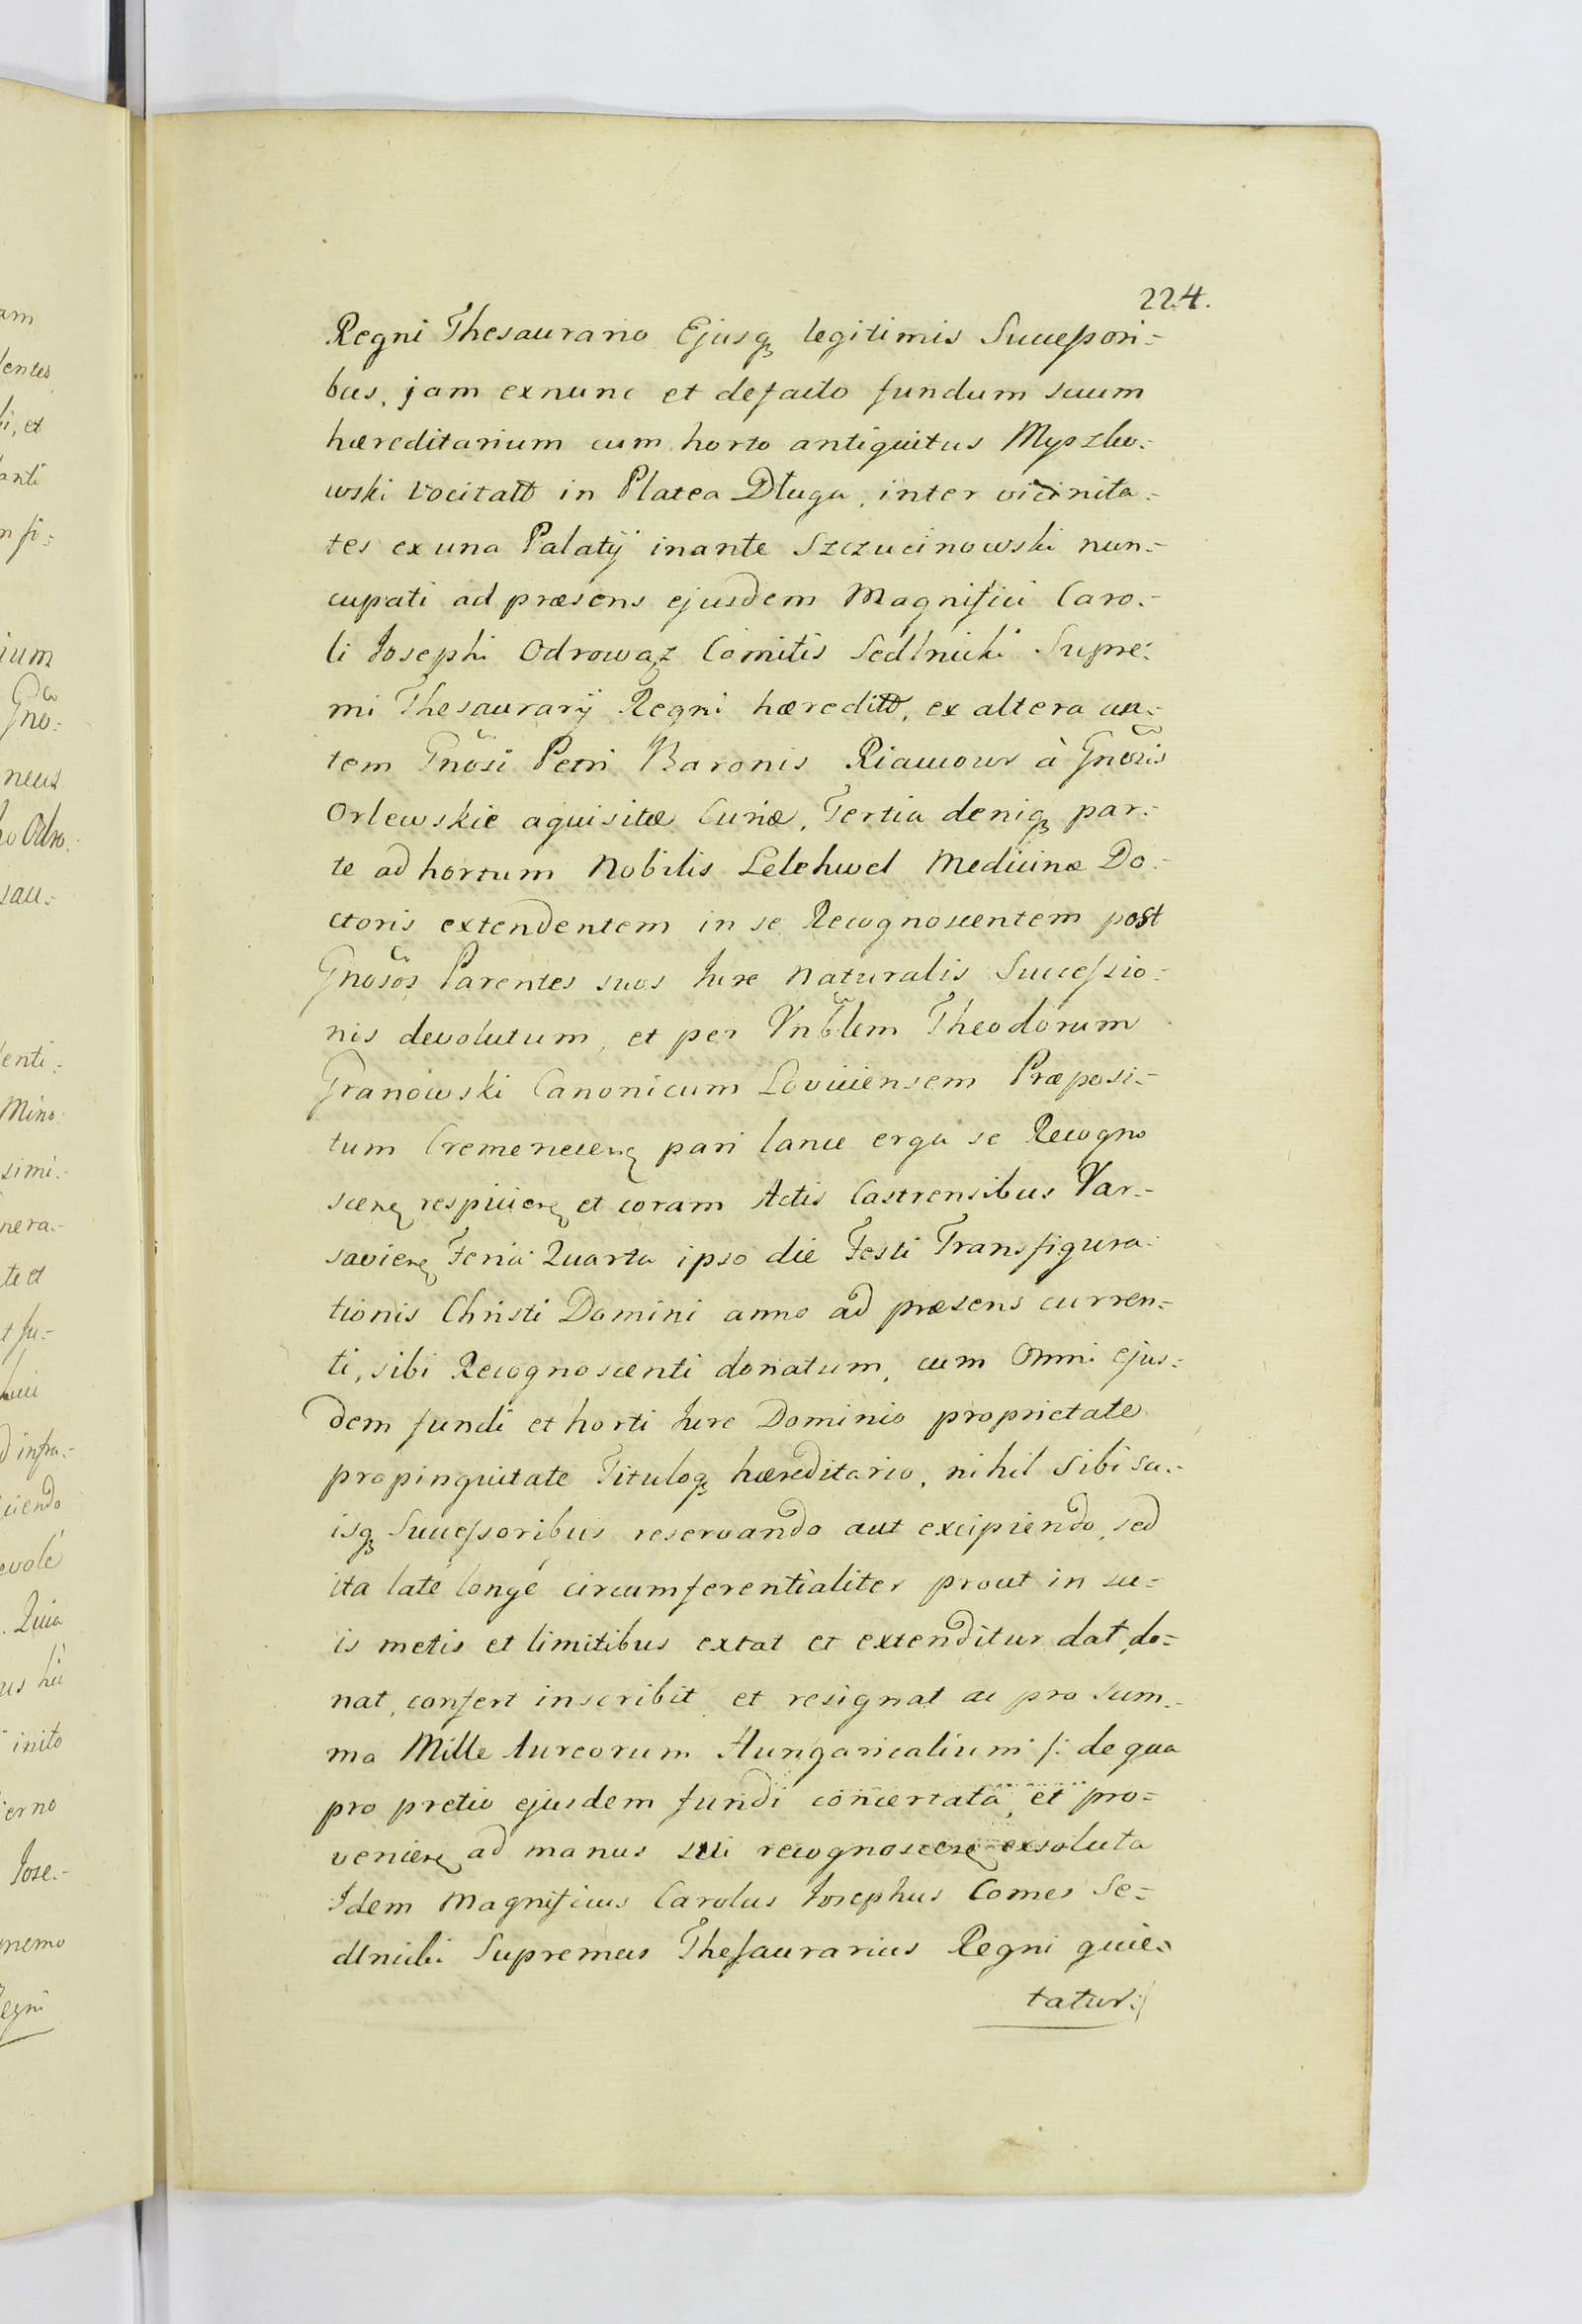 224.
Regni Thesaurario Ejusq3 legitimis Successori=
bus, jam exnunc et defacto fundum suum
hæreditarium cum horto antiquitus Myszko=
wski vocitatt in Platea Długa, inter vicinita=
tes ex una Palatij inante Szczucinowski nun=
cupati ad præsens ejusdem Magnifici Caro=
li Josephi Odrowąz Comitis Sedlnicki Supre=
mi Thesaurarij Regni hæreditt, ex altera au=
tem Gnosi Petri Baronis Riaucour à Gneris
Orlewskie aquisitæ Curiæ, Tertia deniq3 par=
te ad hortum Nobilis Lelehwel Medicinæ Do=
ctoris extendentem in se Recognoscentem post
Gnosos Parentes suos Jure naturalis Successio=
nis devolutum, et per Vnblem Theodorum
Granowski Canonicum Loviciensem Præposi=
tum Cremenecen pari lance erga se Recogno
scen respicien et coram Actis Castrensibus Var=
savien Feria Quarta ipso die Festi Transfigura=
tionis Christi Domini anno ad præsens curren=
ti, sibi Recognoscenti donatum, cum Omni ejus=
dem fundi et horti Jure Dominio proprietate
propinquitate Tituloq3 hæreditario, nihil sibi su=
isq3 Successoribus reservando aut excipiendo, sed
ita laté longé circumferentialiter prout in su=
is metis et limitibus extat et extenditur dat, do=
nat, confert inscribit et resignat ac pro sum=
ma Mille Aureorum Hungaricalium /: de qua
pro pretio ejusdem fundi concertata, et pro=
venien ad manus sui recognoscen exsoluta
Idem Magnificus Carolus Josephus Comes Se=
dlnicki Supremus Thesaurarius Regni quie=
tatur :/